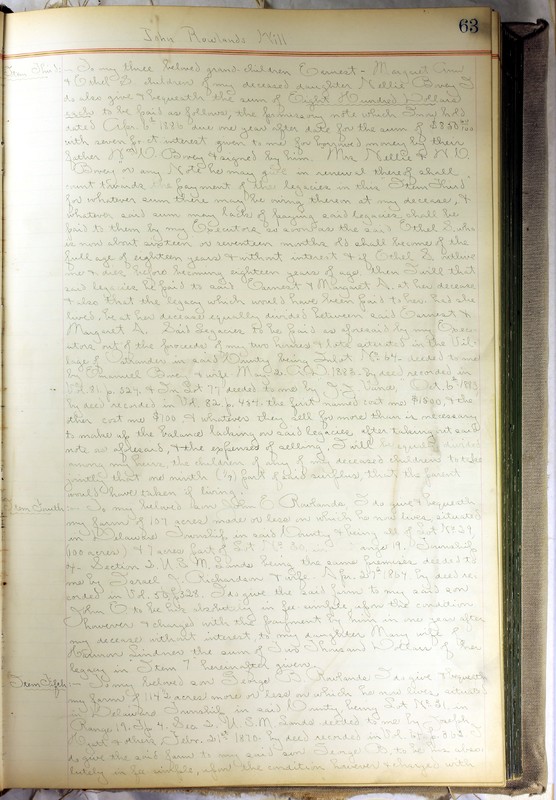 63
John Rowlands Will
Item Third:- To my three beloved grand children Earnest - Margaret Ann
& Ethel S. children of my deceased daughter Nellie Bovey I
do also give & bequeath the sum of Eight Hundred Dollars
each to be paid as follows, the promissory note which I now hold
dated Apr. 6th 1886 due one year after date for the sum of $850
with seven per ct interest given to me for borrowed money by their
father Wm V. Bovey & signed by him Mrs. Nellie & W. V.
Bovey or any Note he may give in renewal thereof shall
count towards the payment of the legacies in this Item Third
for whatever sum there may be owing thereon at my decease, &
whatever said sum may lack of paying said legacies shall be
paid to them by my Executors as soon as the said Ethel S. who
is now about sixteen or seventeen months old shall become of the
full age of eighteen years & without interest & if Ethel S. outlive
me & dies before becoming eighteen years of age, then I will that
said legacies be paid to said Earnest & Margaret A. at her decease
& also that the legacy which would have been paid to her had she
lived, be at her decease equally divided between said Earnest &
Margaret A. Said Legacies to be paid as aforesaid by my Execu-
ators out of the proceeds of my two houses & lots situated in the Vil-
lage of Ostrander in said County being Inlot No 64 deeded to me
by & wife May 2 A.D. 1883 by deed recorded in
Vol. 81 p. 324. & In Lot 77 deeded to me by Oct. 6th 1883
by deed recorded in Vol. 82 p. the first named cost me $1500, & the
other cost me $700 & whatever they sell for more than is necessary
to make up the balance lacking on said legacies after taking out said
note as aforesaid, & the expenses of selling, I will be equally divided
among my heirs, the children of any of my deceased children to take
jointly that one part of said surplus, that the parent
would have taken if living.
Item Fourth:- To my beloved son John E. Rowlands I do give & bequeath
my farm of 107 acres more or less on which he now lives, situated
in Delaware Township in said County & being all of Lot No 29
100 acres & 7 acres part of Lot No 30 in Range 19, Township
4- Section 2. U. S. M. Lands being the same premises deeded to
me by Israel J. Richardson & wife Apr. 27th 1864 by deed re-
corded in Vol. 58 p. 328. I do give the said farm to my said son
John E. to be his absolutely in fee simple, upon the condition
however & charged with the payment by him in one year after
my decease without interest, to my daughter Mary wife of
Harmon Lindner the sum of Two Thousand Dollars of her
legacy in "Item 7" hereinafter given.
Item Fifth:- To my beloved son George B. Rowlands I do give & bequeath
my farm of acres more or less on which he now lives, situated
in Delaware Township in said County being Lot No 31, in
Range 19. Tp 4. Sec 2. U. S. M. Lands deeded to me by Joseph
& others, Febr. 21st 1870 by deed recorded in Vol. p. 302 I
do give the said farm to my said son George B. to be his abso-
lutely in fee simple, upon the condition however & charged with